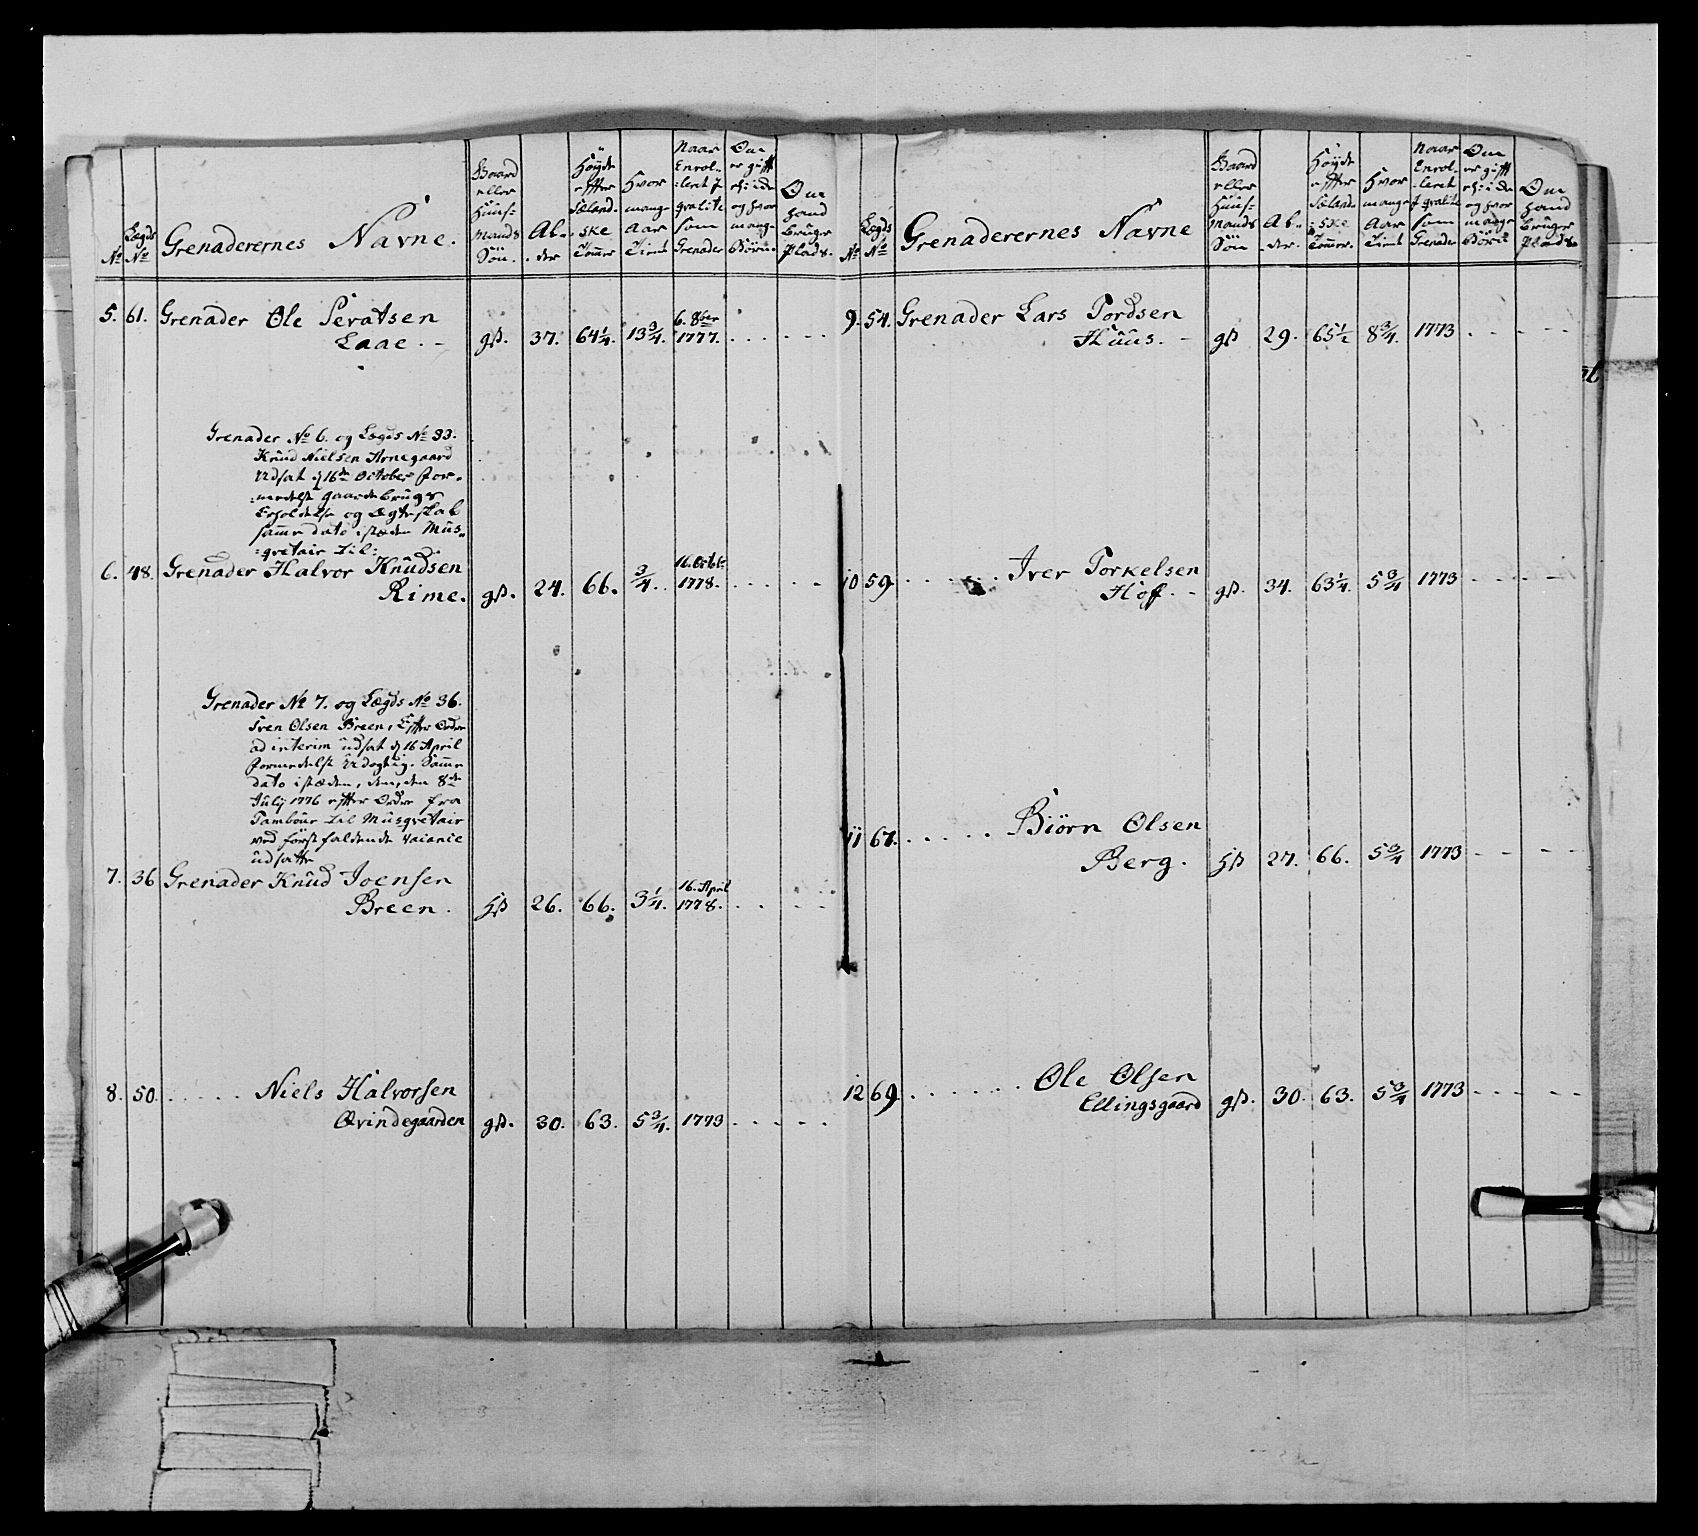 No
Lægds No
Grenaderernes Navne.
Gaard eller Huus- mands Søn.
Al- der
Høyde efter Siæland- ske Tomer
Hvor mange Aar Tient
Naar Enrol- leret I qvalite som Grenader
Om er gift eh: i de og hvor mange Børn
Om hand bruger Plads.
5. 61. Grenader Ole Peratsen
Laae. gß. 37. 64 1/4. 13 3/4. 6. 8ber 1777.
Grenader No 6. og Lægds No 33.
Knud Nielsen Arnegaard
Udsat d 16de October for-
medelst gaardebrugs
Erholdelse og Ægteskab
samme dato istæden Mus-
qvetair Lil:
6. 48. Grenader Halvor Knudsen
Rime. gß. 24. 66. 3/4. 16. Octbr 1778.
Grenader No 7. og Lægds No 36.
Sven Olsen Breen, Efter Ordre
ad interim udsat d 16 April
formedelst Udygtig. Samme
dato istæden, den, den 8de
July 1776 efter Ordre fra
Tambour til Musqvetair
ved først faldende Vacance
udsatte
7. 36 Grenader Knud Joensen
Breen. Hß 26. 66. 3 1/4. 16. April 1778.
8. 50. Niels Halvorsen
Qvindegaarden gß. 30. 63. 5 3/4. 1773
No
Lægds No
Grenaderernes Navne
Gaard eller Huus- mands Søn
Al- der.
Høyde efter Siæland- ske Tomer.
Hvor mange Aar Tient
Naar Enrol- leret I qvalite som Grenader
Om er gift eh: i de og hvor mange Børn
Om hand bruger Plads.
9. 54. Grenader Lars Tordsen
Huus. gß 29. 65 1/2 8 3/4. 1773
10 59. Iver Torkelsen
Hof. gß. 34. 63 1/4. 5 3/4 1773
11 67. Biörn Olsen
Berg. Hß 27. 66. 5 3/4 1773
12 69. Ole Olsen
Ellingsgaard gß. 30. 63. 5 3/4 1773